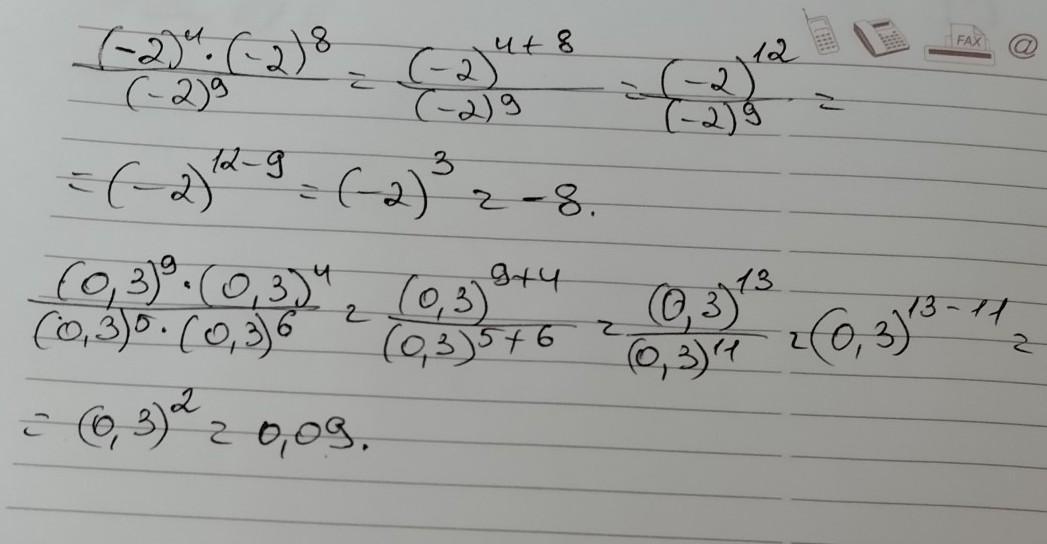 FAX @
(-2)⁴·(-2)⁸/(-2)⁹ = (-2)⁴⁺⁸/(-2)⁹ = (-2)¹²/(-2)⁹ =
= (-2)¹²⁻⁹ = (-2)³ = -8.
(0,3)⁹·(0,3)⁴/(0,3)⁵·(0,3)⁶ = (0,3)⁹⁺⁴/(0,3)⁵⁺⁶ = (0,3)¹³/(0,3)¹¹ = (0,3)¹³⁻¹¹ =
= (0,3)² = 0,09.